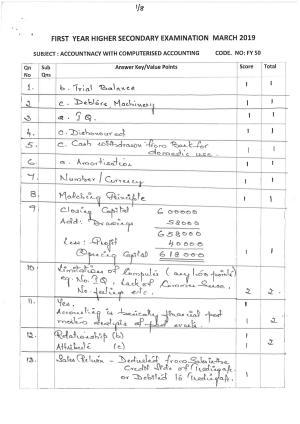 1/8
FIRST YEAR HIGHER SECONDARY EXAMINATION MARCH 2019
SUBJECT : ACCOUNTANCY WITH COMPUTERISED ACCOUNTING CODE. NO: FY 50
Qn No Sub Qns Answer Key/Value Points Score Total
1. b. Trial Balance 1 1
2 c. Debtors, Machinery 1 1
3 a. IQ. 1 1
4. c. Dishonoured 1 1
5. c. Cash withdrawn from Bank for
domestic use. 1 1
6 a. Amortisation 1 1
7. Number/Currency 1 1
8. Matching Principle 1 1
9 Closing Capital 600000
Add: Drawings 58000
658000
Less: Profit 40000
Opening Capital 618000 1 1
10. Limitations of Computer (any two points)
eg. No IQ, Lack of Common Sense,
No feelings etc. 2 2
11. Yes.
Accounting is basically financial and
analysis of past events. 2
12. Relationship (b) 1
Attribute (c) 1 2
13. Sales Return - Deducted from Sales in the
Credit Side of Trading a/c
or Debited to Trading a/c 1